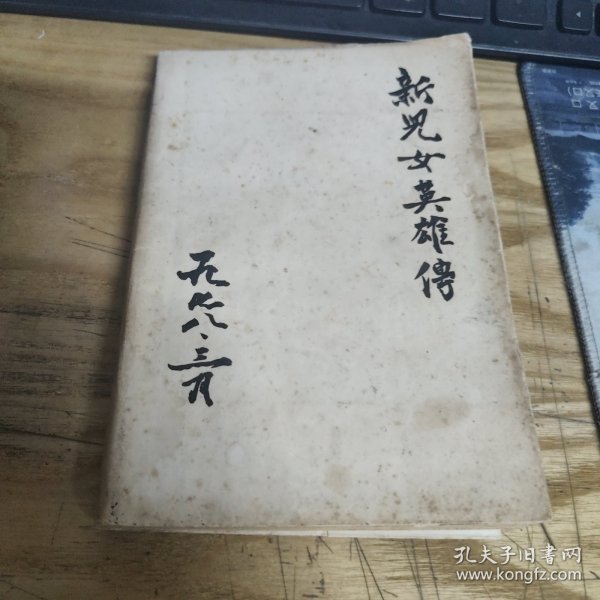 新兒女英雄傳
一九七八、三月
孔夫子旧书网
www.kongfz.com